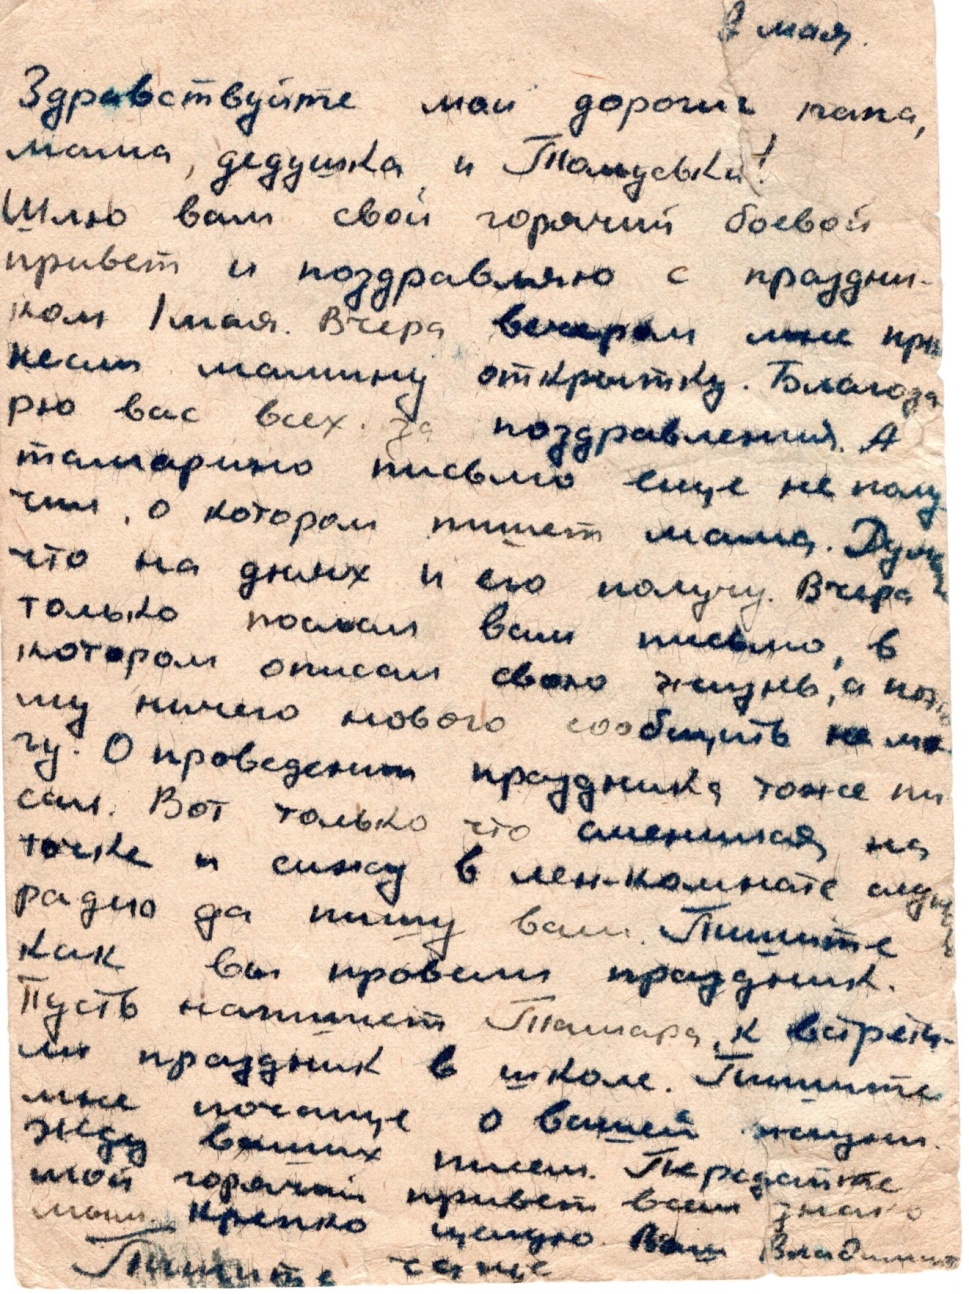 2 мая.
Здравствуйте мои дорогие папа,
мама, дедушка и Томуська!
Шлю вам свой горячий боевой
привет и поздравляю с праздни-
ком 1 мая. Вчера вечером мне при
несли мамину открытку. Благода
рю вас всех за поздравления. А
тамарино письмо еще не полу
чил, о котором пишет мама. Думаю
что на днях и его получу. Вчера
только послал вам письмо, в
котором описал свою жизнь, а поэто
му ничего нового сообщить не мо-
гу. О проведении праздника тоже пи
сал. Вот только что сменился на
точке и сижу в лен-комнате слушаю
радио да пишу вам. Пишите
как вы провели праздник.
Пусть напишет Тамара, к встрети-
ли праздник в школе. Пишите
мне почаще о вашей жизни.
Жду ваших писем. Передайте
мой горячий привет всем знако
мым. Крепко целую. Ваш Владимир
Пишите чаще